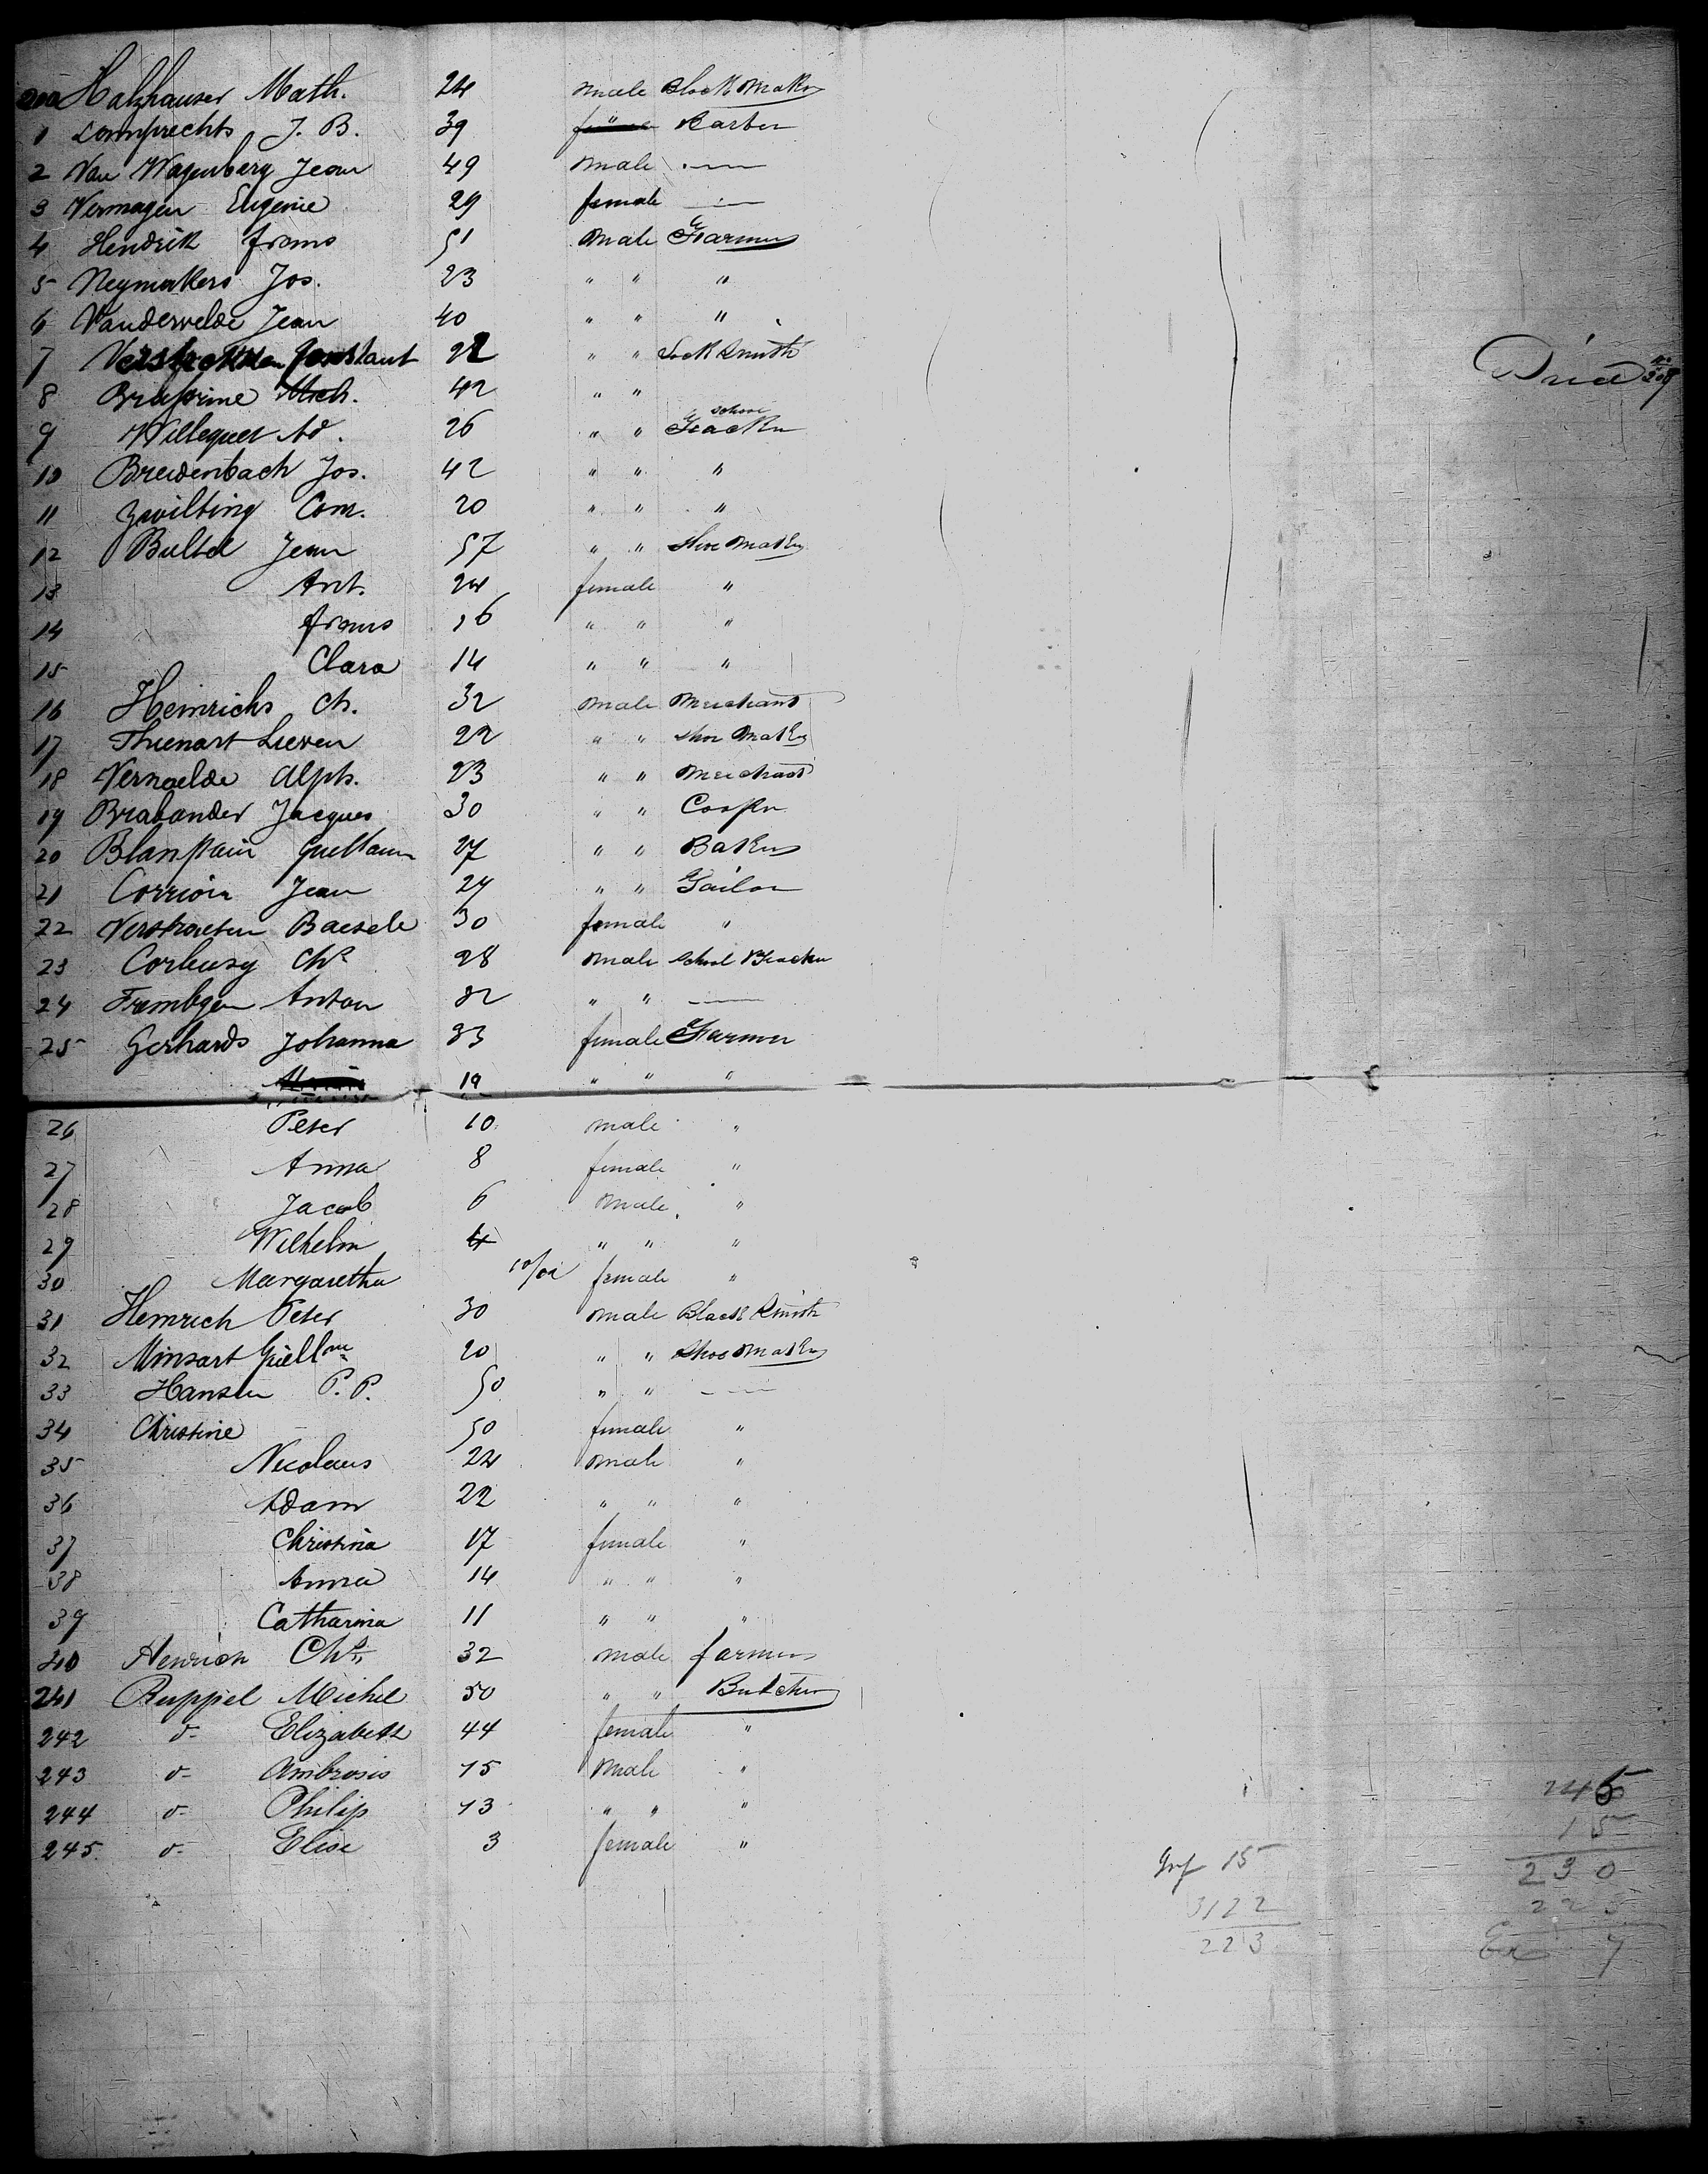 200 Halzhauser Math. 24 male Clock Maker
1 Lamprechts J. B. 39 " Barber
2 Van Wagenberg Jean 49 male —
3 Vermagen Eugenie 29 female —
4 Hendrik frans 51 male Farmer
5 Neymakers Jos. 23 " " "
6 Vandervelde Jean 40 " " "
7 Constant 22 " " Lock Smith
8 Mich. 42 " "
9 Willequet Ad. 26 " " school Teacher
10 Breidenbach Jos. 42 " " "
11 Zwilling Com. 20 " " "
12 Bultel Jean 57 " " Shoe Maker
13 Ant. 24 female "
14 frans 16 " " "
15 Clara 14 " " "
16 Heinrichs Ch. 32 male Merchant
17 Thienart Lieven 22 " " Shoe Maker
18 Vernaelde Alph. 23 " " Merchant
19 Brabander Jacques 30 " " Cooper
20 Blanpain Guillaum 27 " " Baker
21 Corrion Jean 24 " " Tailor
22 Verstraeten Baesele 30 female "
23 Corbusy Chs 28 male School Teacher
24 Frembgen Anton 82 " " —
25 Gerhards Johanna 33 female Farmer
19 " " "
26 Peter 10 male "
27 Anna 8 female "
28 Jacob 6 male "
29 Wilhelm 4 " " "
30 Margaretha 10/02 female "
31 Hemrich Peter 30 male Black Smith
32 Minsart Guillme 20 " " Shoe Maker
33 Hansen P. P. 50 " " —
34 Christine 50 female "
35 Nicolaus 24 male "
36 Adam 22 " " "
37 Christina 17 female "
38 Anna 14 " " "
39 Catharina 11 " " "
40 Henrion Chs 32 male farmer
241 Ruppel Michel 50 " " Butcher
242 d- Elizabeth 44 female "
243 d- Ambrosis 15 male "
244 d- Philip 13 " " "
245 d- Elise 3 female "
Died No 209
Inf 15
3122
223
245
15
230
223
Er 7